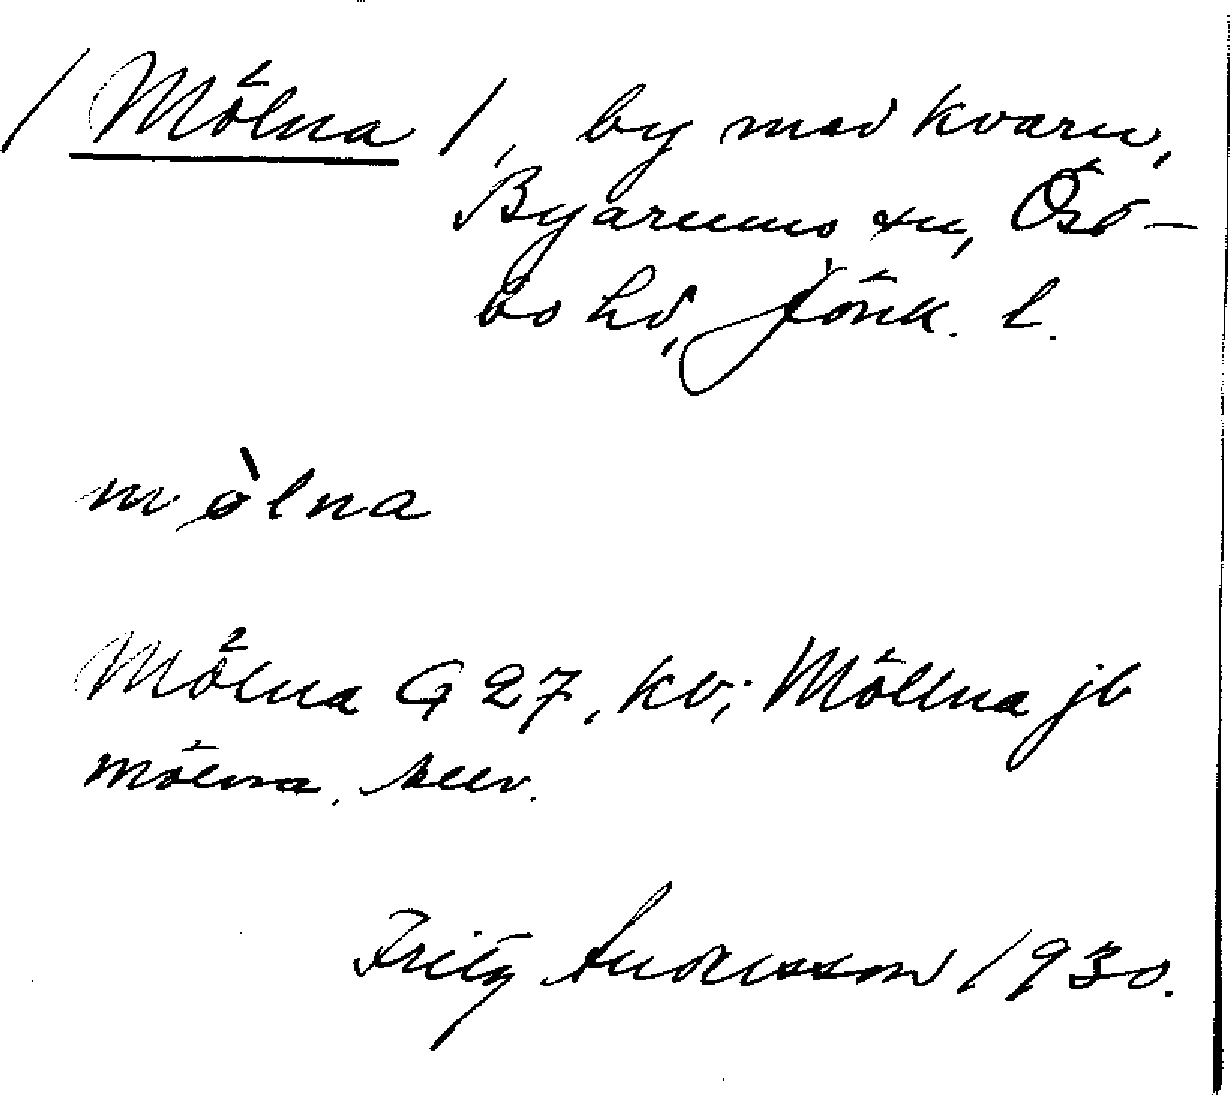 / Mölna /, by med kvarn,
Byarums sn, Öst-
bo hd, Jönk. l.
mòlna
Mölna G 27, kv; Möllna jb
Mölna,
Fritz Andersson 1930.